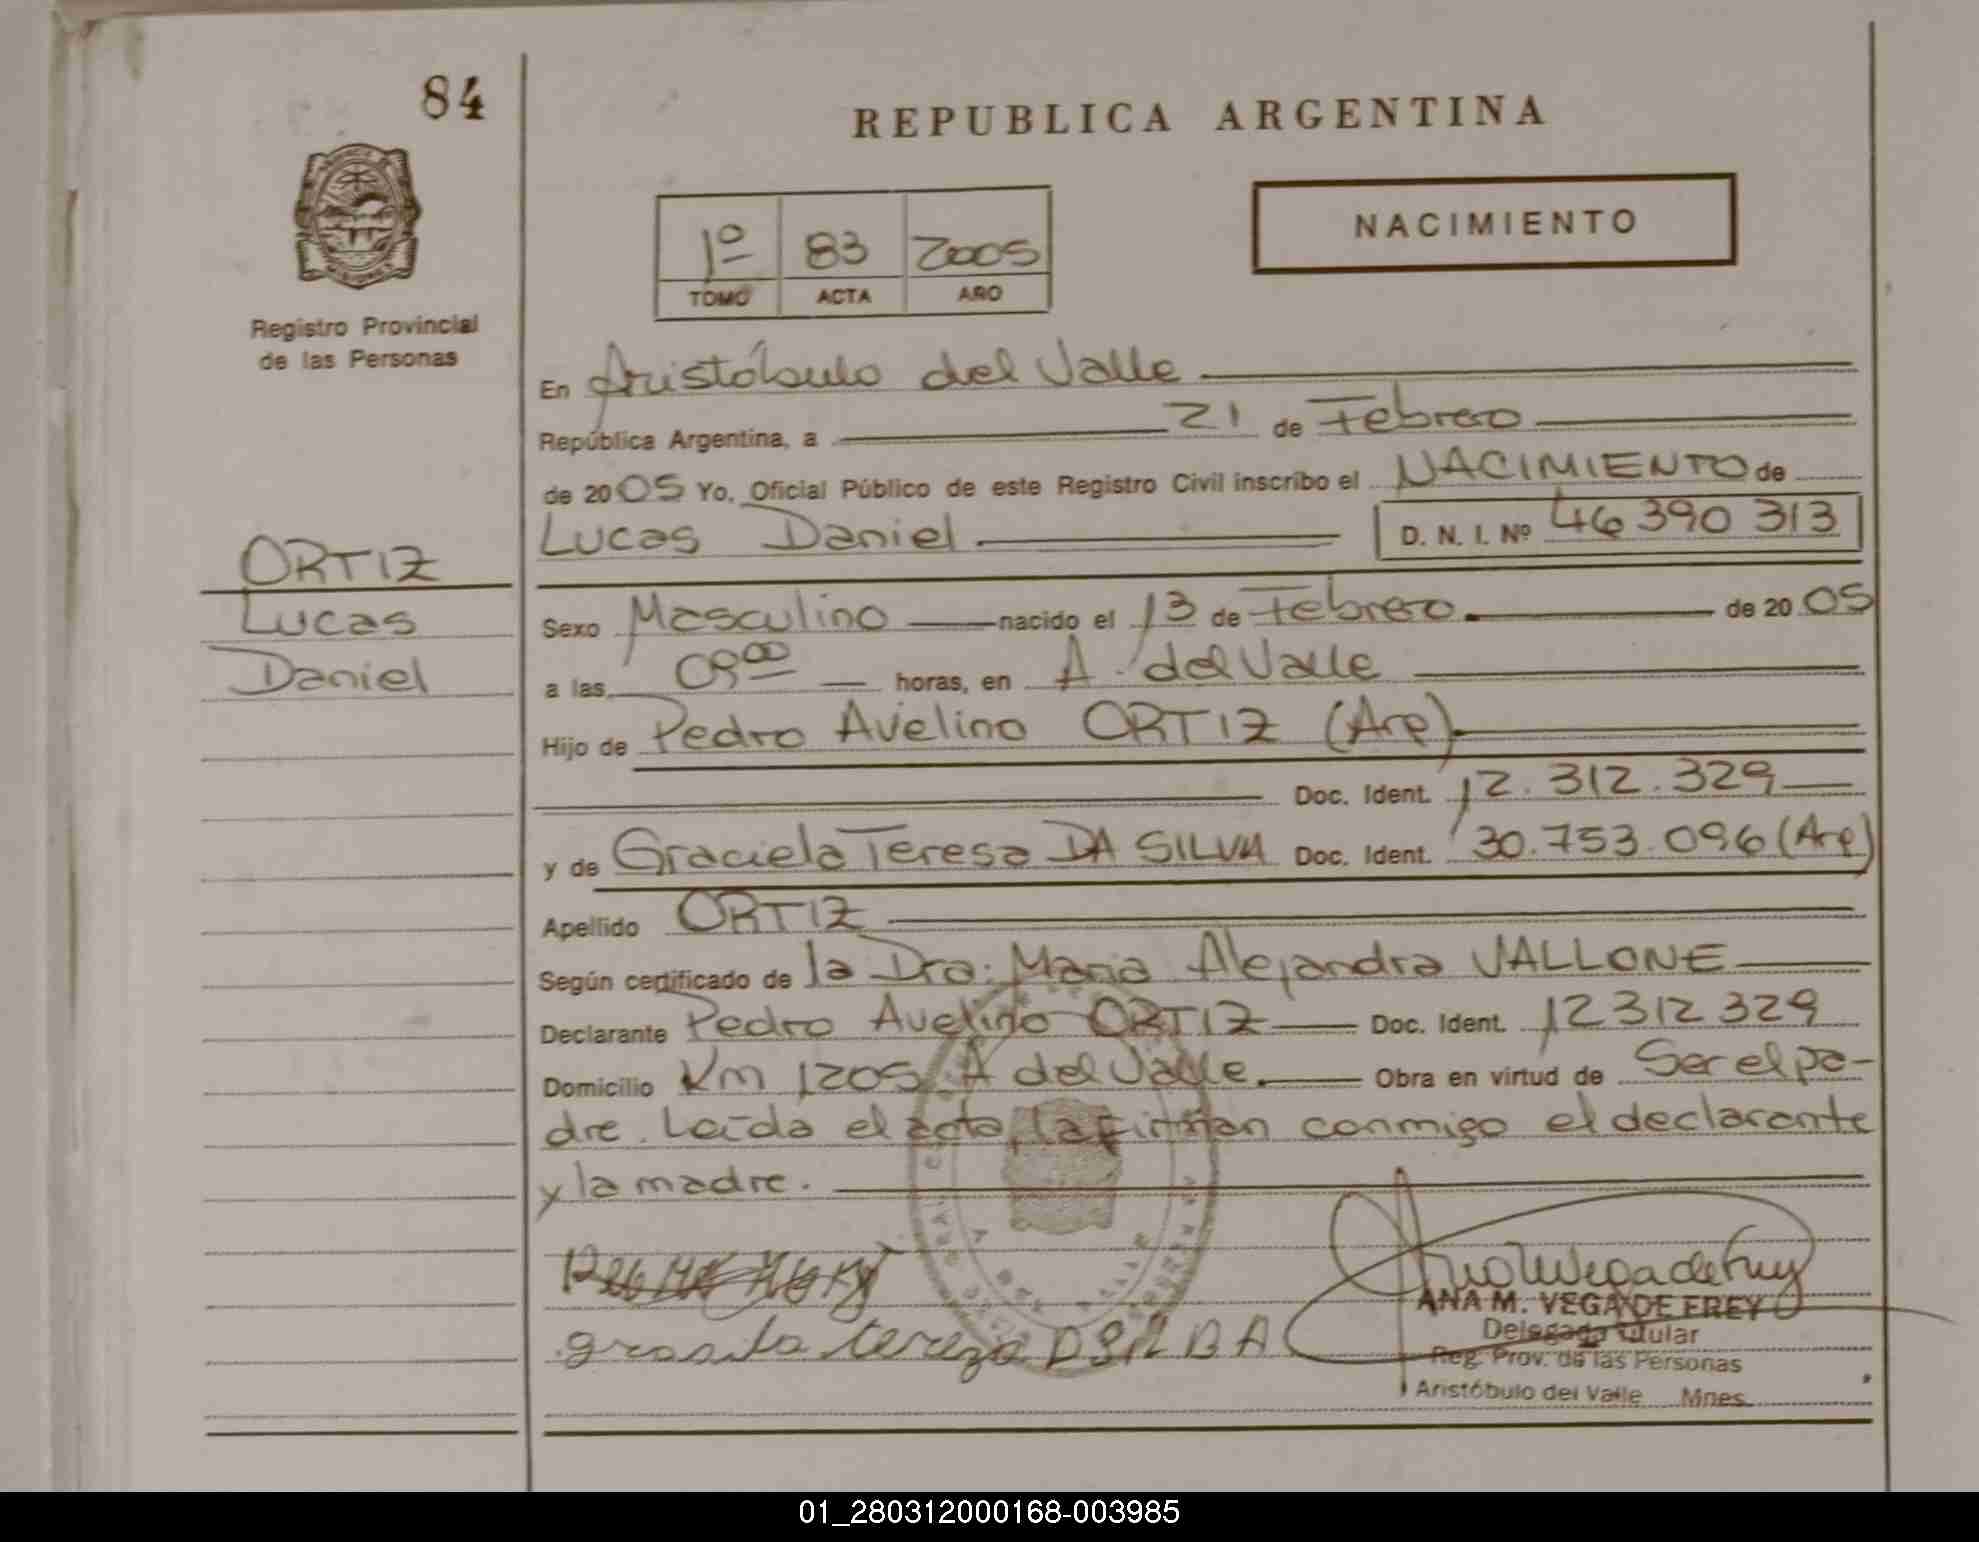 84
REPUBLICA ARGENTINA
NACIMIENTO
1º 83 2005
TOMO ACTA AÑO
Registro Provincial
de las Personas
En Aristóbulo del Valle
República Argentina, a 21 de Febrero
de 2005 Yo, Oficial Público de este Registro Civil inscribo el NACIMIENTO de
Lucas Daniel D. N. I. Nº 46 390 313
ORTIZ
Lucas
Daniel
Sexo Masculino nacido el 13 de Febrero de 2005
a las horas, en A. del Valle
Hijo de Pedro Avelino ORTIZ (Arg)
Doc. Ident. 12.312.329
y de Graciela Teresa DA SILVA Doc. Ident. 30.753.096 (Arg)
Apellido ORTIZ
Según certificado de la Dra. Maria Alejandra VALLONE
Declarante Pedro Avelino ORTIZ Doc. Ident. 12 312 329
Domicilio Km 1205 A del Valle. Obra en virtud de Ser el pa-
dre. Leída el acta, la firman conmigo el declarante
y la madre.
ANA M. VEGA DE FREY
Delegada Titular
Reg. Prov. de las Personas
Aristóbulo del Valle Mnes.
01_280312000168-003985